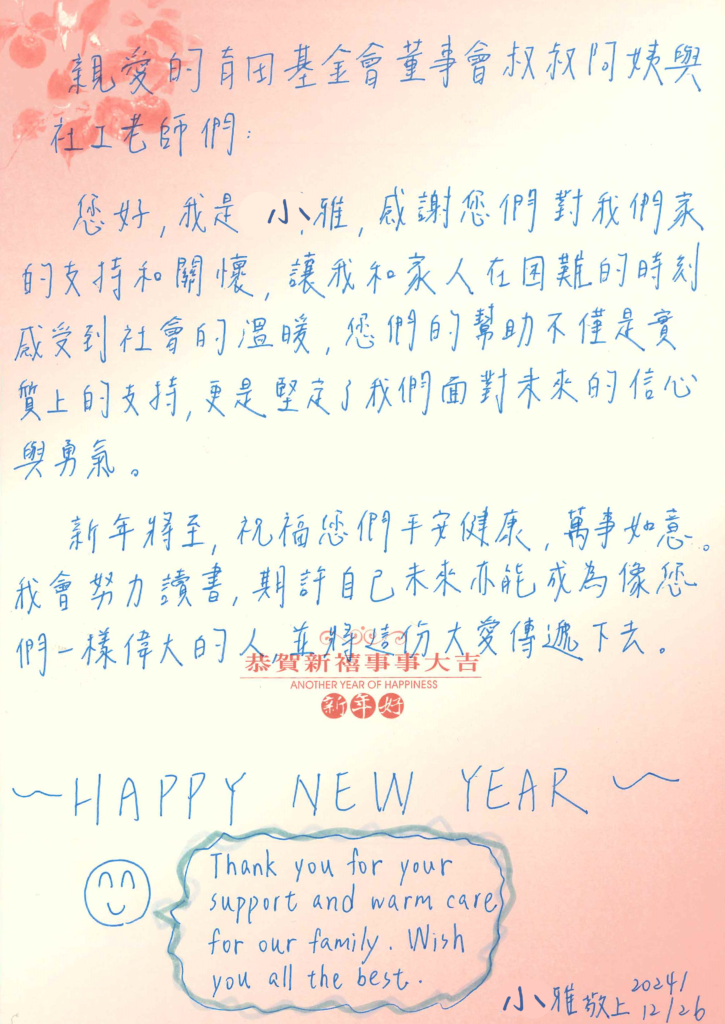 親愛的育田基金會董事會叔叔阿姨與
社工老師們:
您好,我是 小雅,感謝您們對我們家
的支持和關懷,讓我和家人在困難的時刻
感受到社會的溫暖,您們的幫助不僅是實
質上的支持,更是堅定了我們面對未來的信心
與勇氣。
新年將至,祝福您們平安健康,萬事如意。
我會努力讀書,期許自己未來亦能成為像您
們一樣偉大的人,並將這份大愛傳遞下去。
恭賀新禧事事大吉
ANOTHER YEAR OF HAPPINESS
新年好
~HAPPY NEW YEAR~
Thank you for your
support and warm care
for our family. Wish
you all the best.
小雅敬上 2024/
12/26